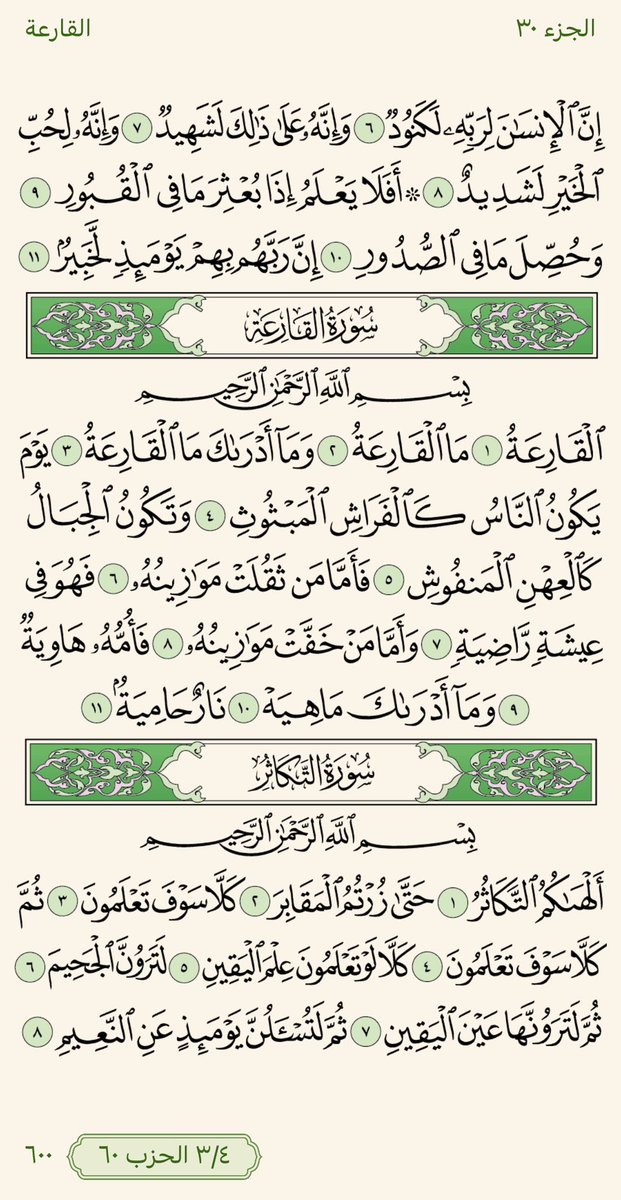 الجزء ٣٠
القارعة
إِنَّ ٱلْإِنسَٰنَ لِرَبِّهِۦ لَكَنُودٌ ٦ وَإِنَّهُۥ عَلَىٰ ذَٰلِكَ لَشَهِيدٌ ٧ وَإِنَّهُۥ لِحُبِّ
ٱلْخَيْرِ لَشَدِيدٌ ٨ ۞ أَفَلَا يَعْلَمُ إِذَا بُعْثِرَ مَا فِى ٱلْقُبُورِ ٩
وَحُصِّلَ مَا فِى ٱلصُّدُورِ ١٠ إِنَّ رَبَّهُم بِهِمْ يَوْمَئِذٍ لَّخَبِيرٌۢ ١١
سُورَةُ القَارِعَةِ
بِسْمِ ٱللَّهِ ٱلرَّحْمَٰنِ ٱلرَّحِيمِ
ٱلْقَارِعَةُ ١ مَا ٱلْقَارِعَةُ ٢ وَمَآ أَدْرَىٰكَ مَا ٱلْقَارِعَةُ ٣ يَوْمَ
يَكُونُ ٱلنَّاسُ كَٱلْفَرَاشِ ٱلْمَبْثُوثِ ٤ وَتَكُونُ ٱلْجِبَالُ
كَٱلْعِهْنِ ٱلْمَنفُوشِ ٥ فَأَمَّا مَن ثَقُلَتْ مَوَٰزِينُهُۥ ٦ فَهُوَ فِى
عِيشَةٍ رَّاضِيَةٍ ٧ وَأَمَّا مَنْ خَفَّتْ مَوَٰزِينُهُۥ ٨ فَأُمُّهُۥ هَاوِيَةٌ
٩ وَمَآ أَدْرَىٰكَ مَا هِيَهْ ١٠ نَارٌ حَامِيَةٌۢ ١١
سُورَةُ التَّكَاثُرِ
بِسْمِ ٱللَّهِ ٱلرَّحْمَٰنِ ٱلرَّحِيمِ
أَلْهَىٰكُمُ ٱلتَّكَاثُرُ ١ حَتَّىٰ زُرْتُمُ ٱلْمَقَابِرَ ٢ كَلَّا سَوْفَ تَعْلَمُونَ ٣ ثُمَّ
كَلَّا سَوْفَ تَعْلَمُونَ ٤ كَلَّا لَوْ تَعْلَمُونَ عِلْمَ ٱلْيَقِينِ ٥ لَتَرَوُنَّ ٱلْجَحِيمَ ٦
ثُمَّ لَتَرَوُنَّهَا عَيْنَ ٱلْيَقِينِ ٧ ثُمَّ لَتُسْـَٔلُنَّ يَوْمَئِذٍ عَنِ ٱلنَّعِيمِ ٨
٣/٤ الحزب ٦٠
٦٠٠